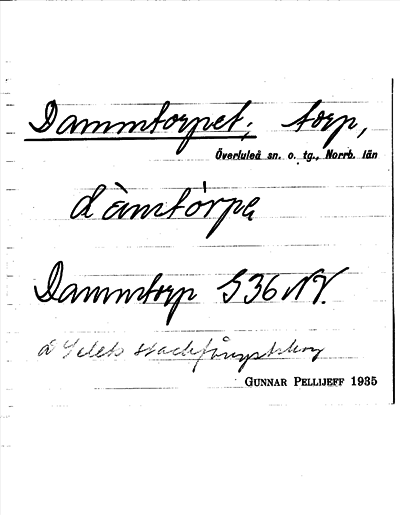 Dammtorpet; torp,
Överluleå sn. o. tg., Norrb. län
dàmtórpe
Dammtorp S36 NV.
å Selets
GUNNAR PELLIJEFF 1935